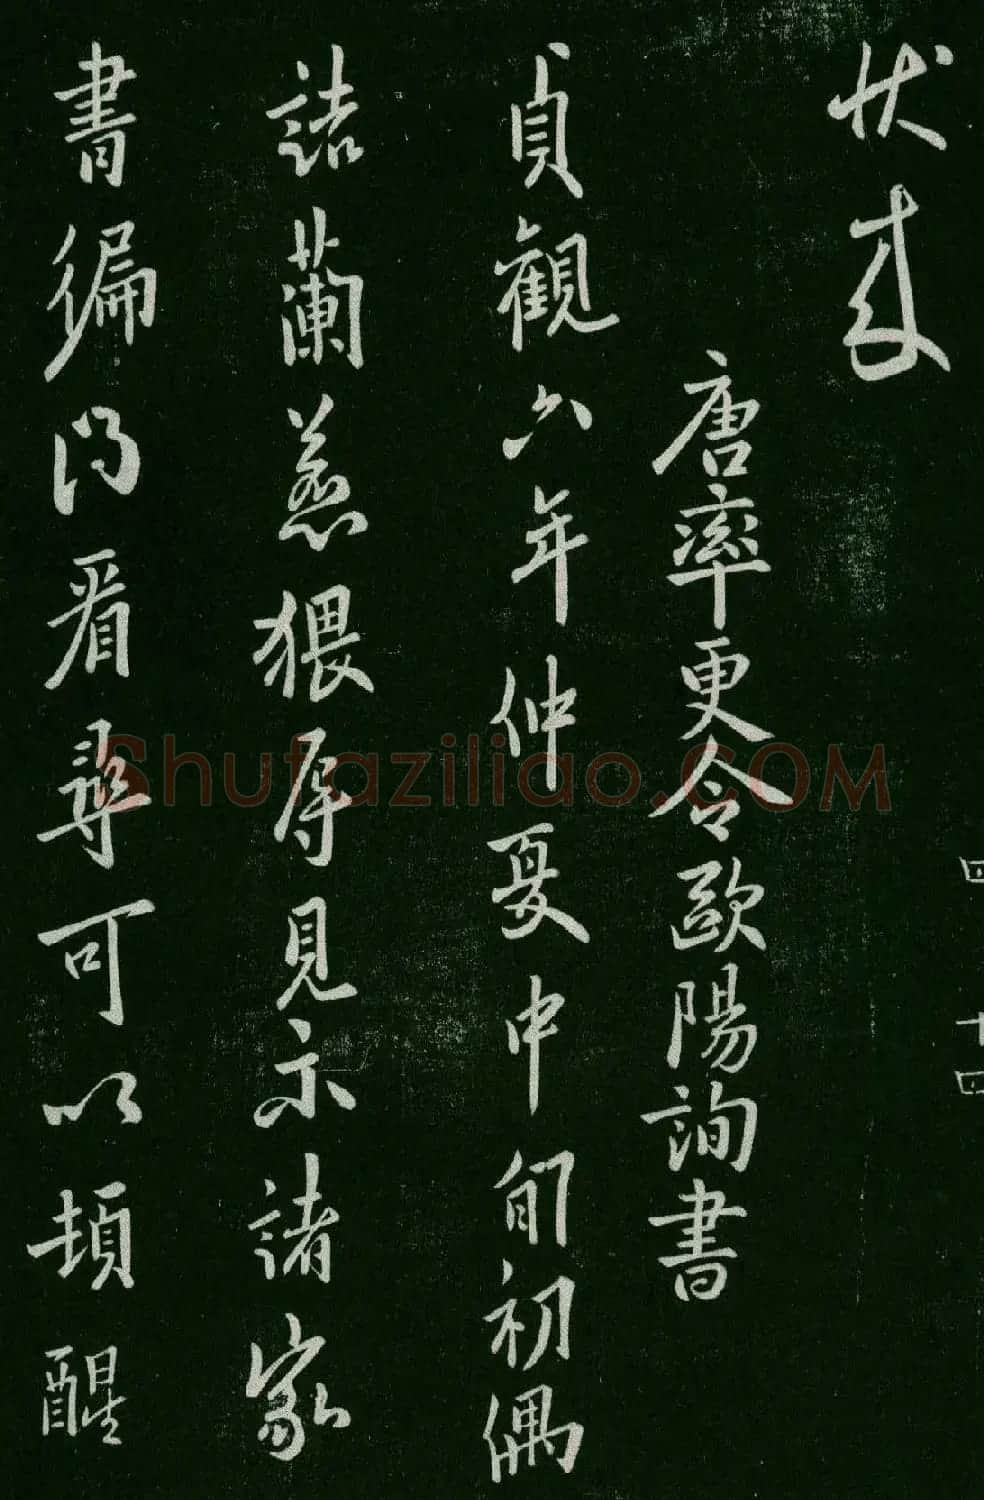 四
十四
唐率更令歐陽詢書
貞觀六年仲夏中旬初偶
詣蘭惹猥辱見示諸家
書徧得看尋可以頓醒
Shufaziliao.COM